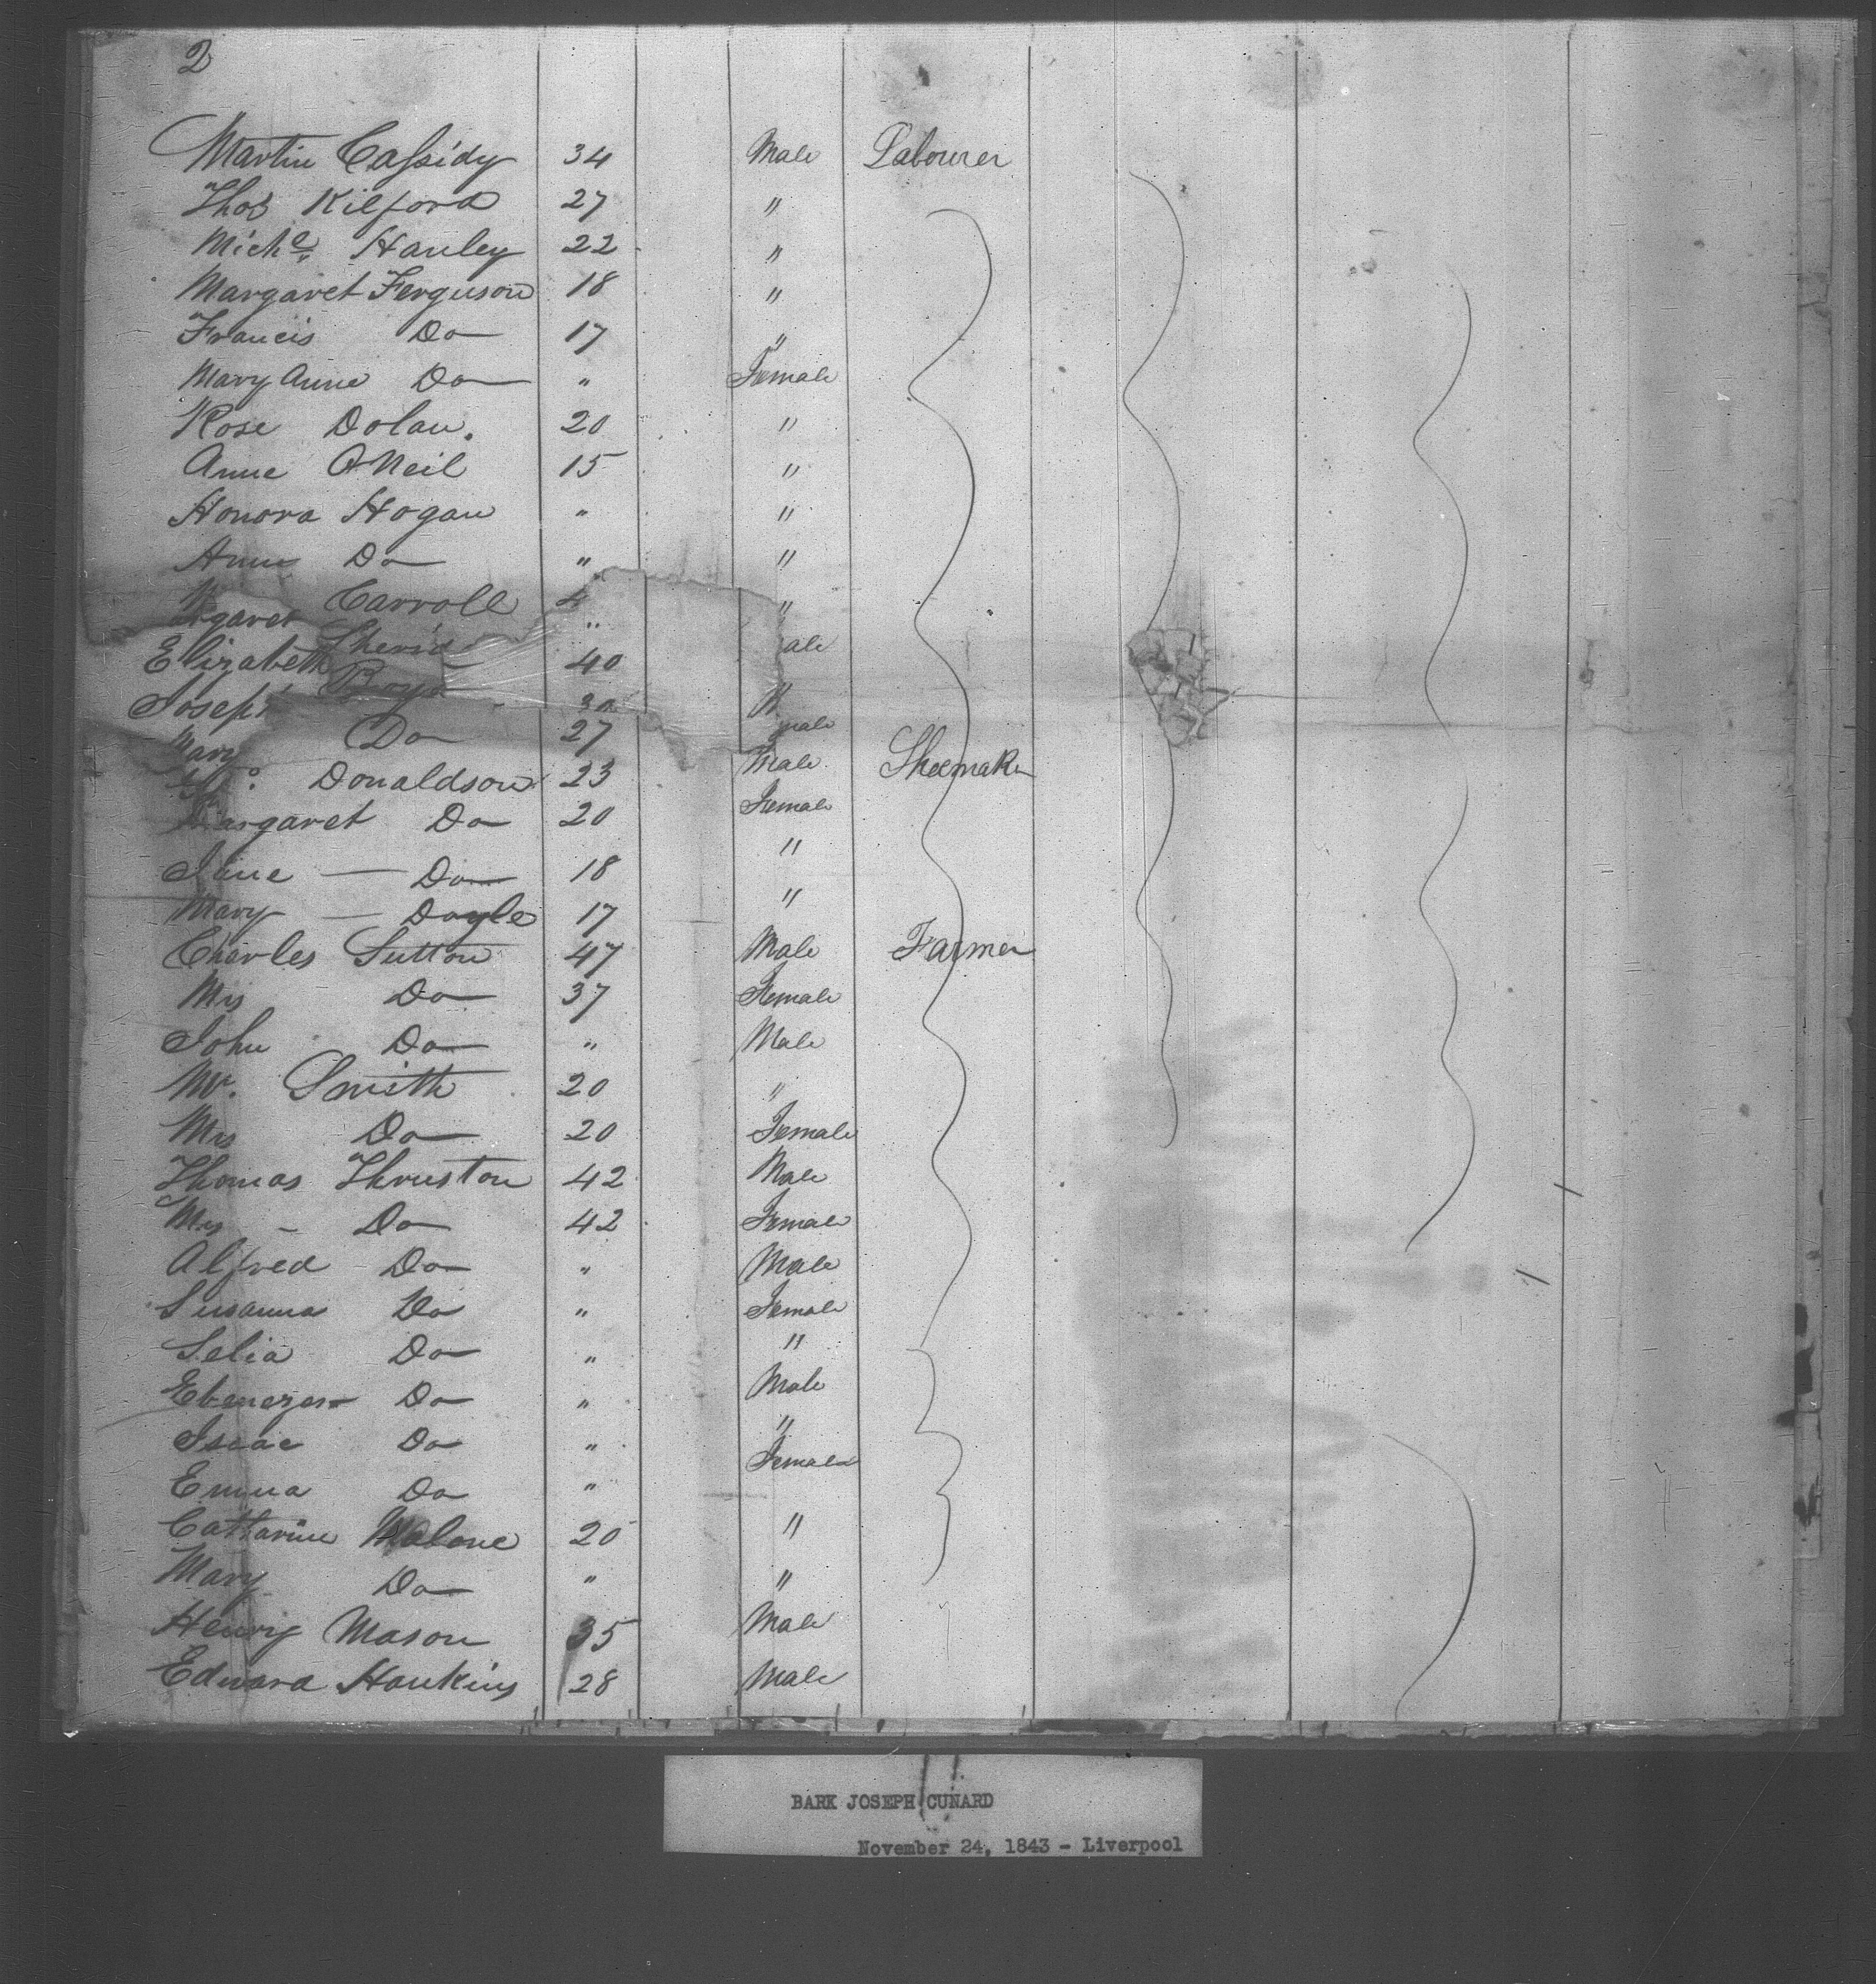 2
Martin Cassidy 34 Male Labourer
Thos Kilford 27 "
Michl Hanley 22 "
Margaret Ferguson 18 "
Francis Do 17 "
Mary Anne Do " Female
Rose Dolan. 20 "
Anne O'Neil 15 "
Honora Hogan " "
Anne Do " "
Carroll "
Sherid " ale
Elizabeth 40
Joseph Boyd 30 "
Mary Do 27 male
Donaldson 23 Male Shoemaker
Margaret Do 20 Female
Jane — Do 18 "
Mary — Doyle 17 "
Charles Sutton 47 Male Farmer
Mrs Do 37 Female
John Do " Male
Mr. Smith 20 "
Mrs Do 20 Female
Thomas Thruston 42 Male
Mrs - Do 42 Female
Alfred Do " Male
Susanna Do " Female
Selia Do " "
Ebenezer Do " Male
Isaac Do " "
Emma Do " Female
Catharine Malone 20 "
Mary Do " "
Henry Mason 35 Male
Edward Hankins 28 Male
BARK JOSEPH CUNARD
November 24, 1843 - Liverpool